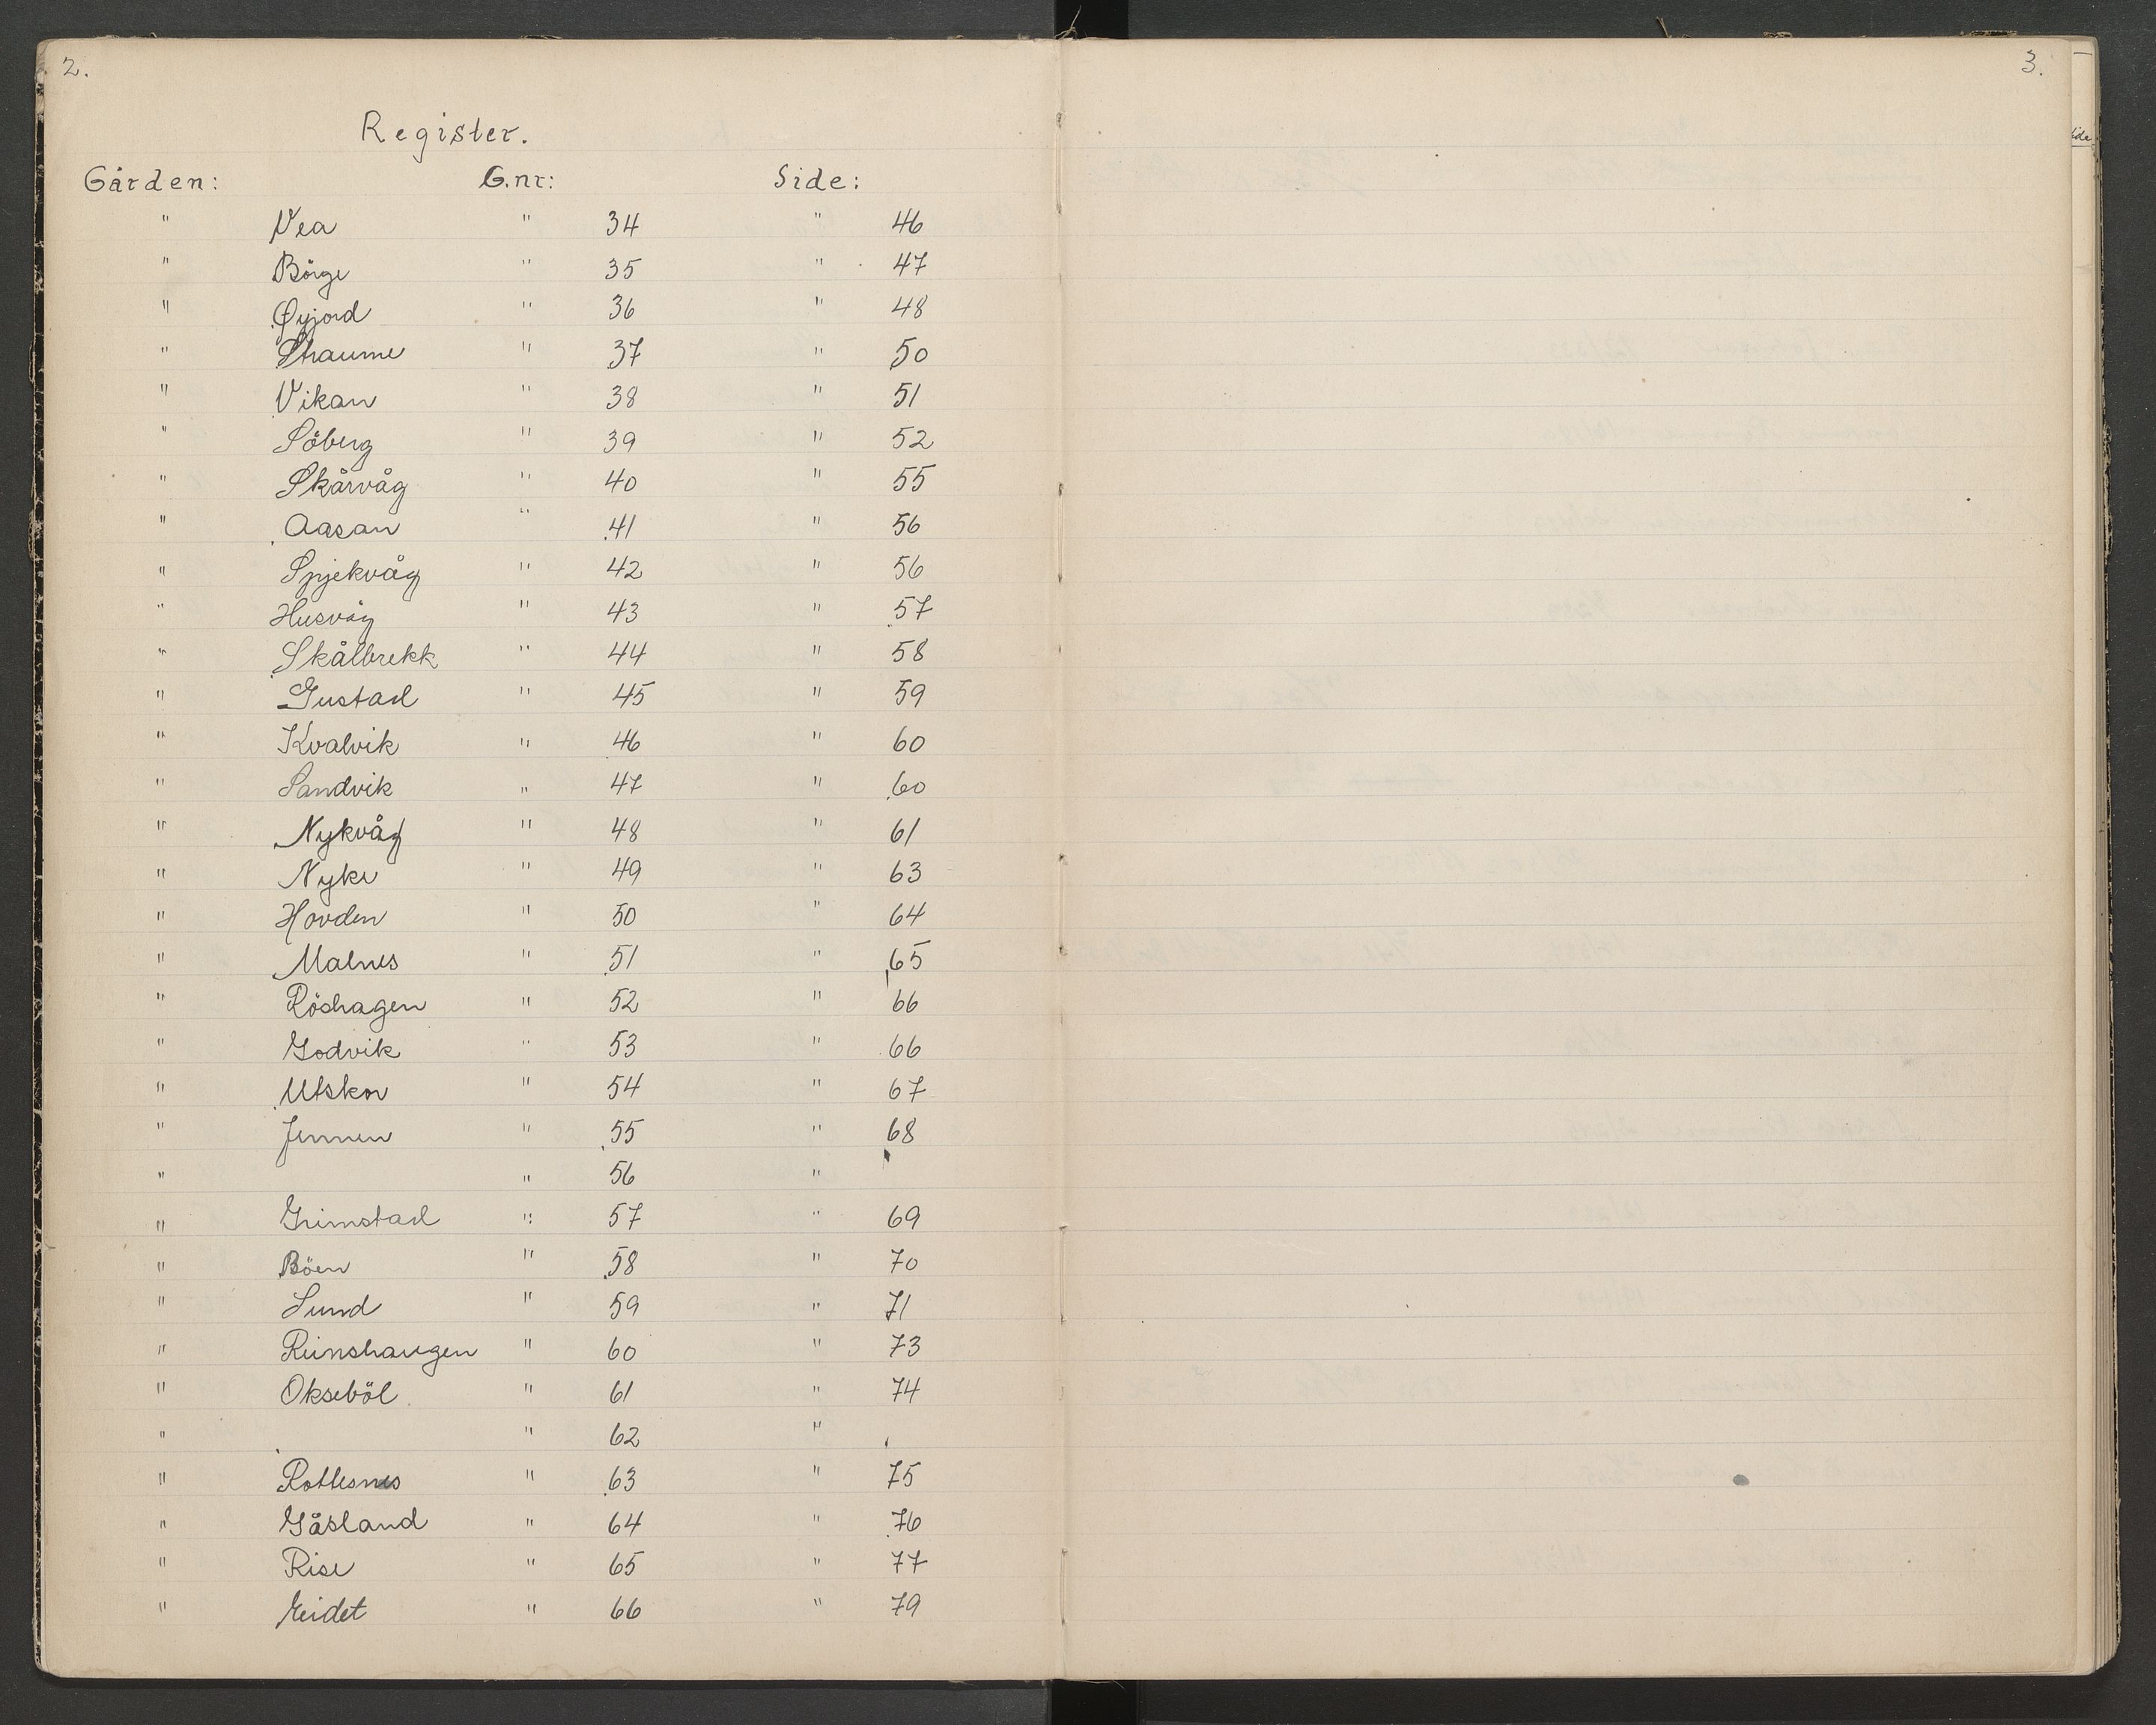 2.
Register.
Gården: G.nr: Side:
" Vea " 34 " 46
" Börge " 35 " 47
" Øyjord " 36 " 48
" Straume " 37 " 50
" Vikan " 38 " 51
" Söberg " 39 " 52
" Skårvåg " 40 " 55
" Aasan " 41 " 56
" Spjekvåg " 42 " 56
" Husvåg " 43 " 57
" Skålbrekk " 44 " 58
" Gustad " 45 " 59
" Kvalvik " 46 " 60
" Sandvik " 47 " 60
" Nykvåg " 48 " 61
" Nyke " 49 " 63
" Hovden " 50 " 64
" Malnes " 51 " 65
" Röshagen " 52 " 66
" Godvik " 53 " 66
" Utskor " 54 " 67
" Jennen " 55 " 68
" " 56 "
" Grimstad " 57 " 69
" Böen " 58 " 70
" Lund " 59 " 71
" Reinshaugen " 60 " 73
" Okseböl " 61 " 74
" " 62 "
" Rottesnes " 63 " 75
" Gåsland " 64 " 76
" Rise " 65 " 77
" Eidet " 66 " 79
3.